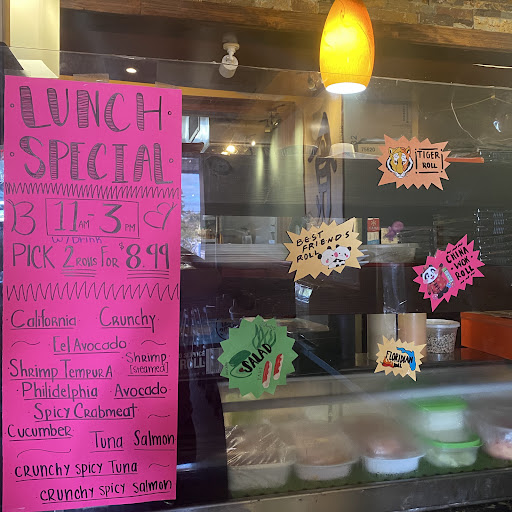 LUNCH
SPECIAL
11AM - 3PM
W/ DRINK
PICK 2 ROLLS FOR $8.99
California Crunchy
Eel Avocado
Shrimp Tempura Shrimp [steamed]
Philidelphia Avocado
Spicy Crabmeat
Cucumber Tuna Salmon
crunchy spicy Tuna
crunchy spicy salmon
TIGER
ROLL
BEST
FRIENDS
ROLL
CHINA
WOK
ROLL
SALAD
FLORIDIAN
ROLL